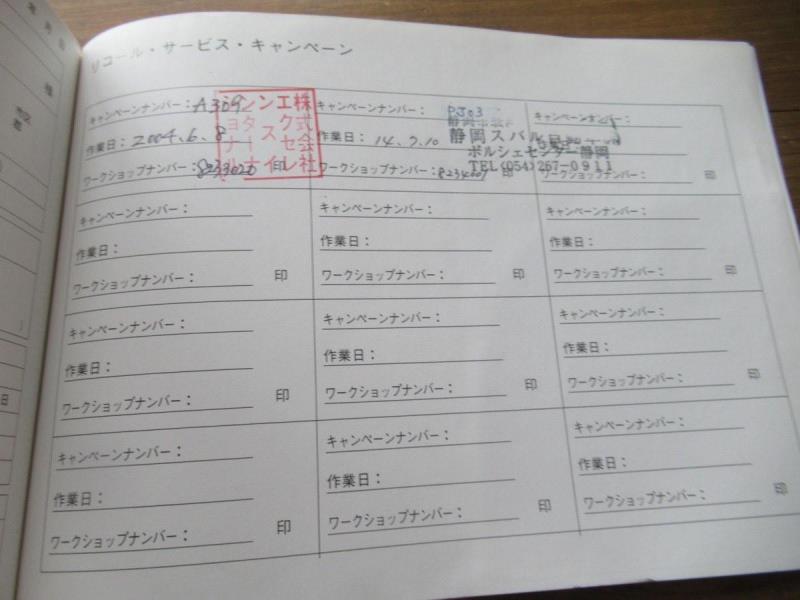 リコール・サービス・キャンペーン
キャンペーンナンバー：A309
作業日：2004.6.8.
ワークショップナンバー：8233020 印
株式会社
エクセレイ
ンスイ
キャンペーンナンバー：PJ03
作業日：14.7.10
ワークショップナンバー：印
静岡スバル
ポルシェセンター静岡
TEL(054)267-0911
キャンペーンナンバー：
印
キャンペーンナンバー：
作業日：
ワークショップナンバー： 印
キャンペーンナンバー：
作業日：
ワークショップナンバー： 印
キャンペーンナンバー：
作業日：
ワークショップナンバー： 印
キャンペーンナンバー：
作業日：
ワークショップナンバー： 印
キャンペーンナンバー：
作業日：
ワークショップナンバー： 印
キャンペーンナンバー：
作業日：
ワークショップナンバー： 印
キャンペーンナンバー：
作業日：
ワークショップナンバー： 印
キャンペーンナンバー：
作業日：
ワークショップナンバー： 印
キャンペーンナンバー：
作業日：
ワークショップナンバー： 印